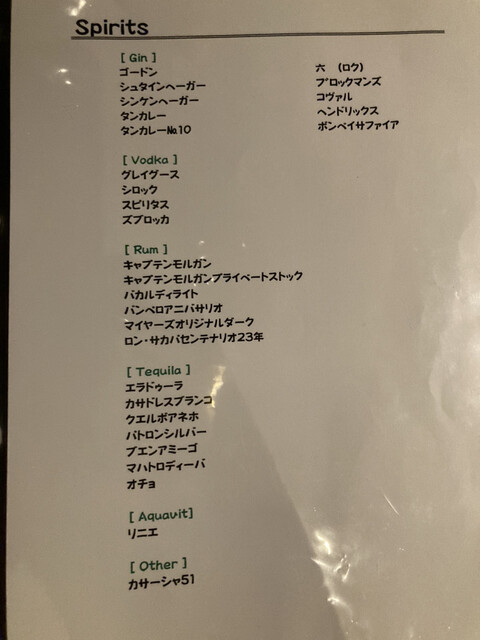 Spirits
[ Gin ]
ゴードン
シュタインヘーガー
シンケンヘーガー
タンカレー
タンカレー№10
六 (ロク)
ブロックマンズ
コヴァル
ヘンドリックス
ボンベイサファイア
[ Vodka ]
グレイグース
シロック
スピリタス
ズブロッカ
[ Rum ]
キャプテンモルガン
キャプテンモルガンプライベートストック
バカルディライト
パンペロアニバサリオ
マイヤーズオリジナルダーク
ロン・サカパセンテナリオ23年
[ Tequila ]
エラドゥーラ
カサドレスブランコ
クエルボアネホ
パトロンシルバー
ブエンアミーゴ
マハトロディーバ
オチョ
[ Aquavit]
リニエ
[ Other ]
カサーシャ51